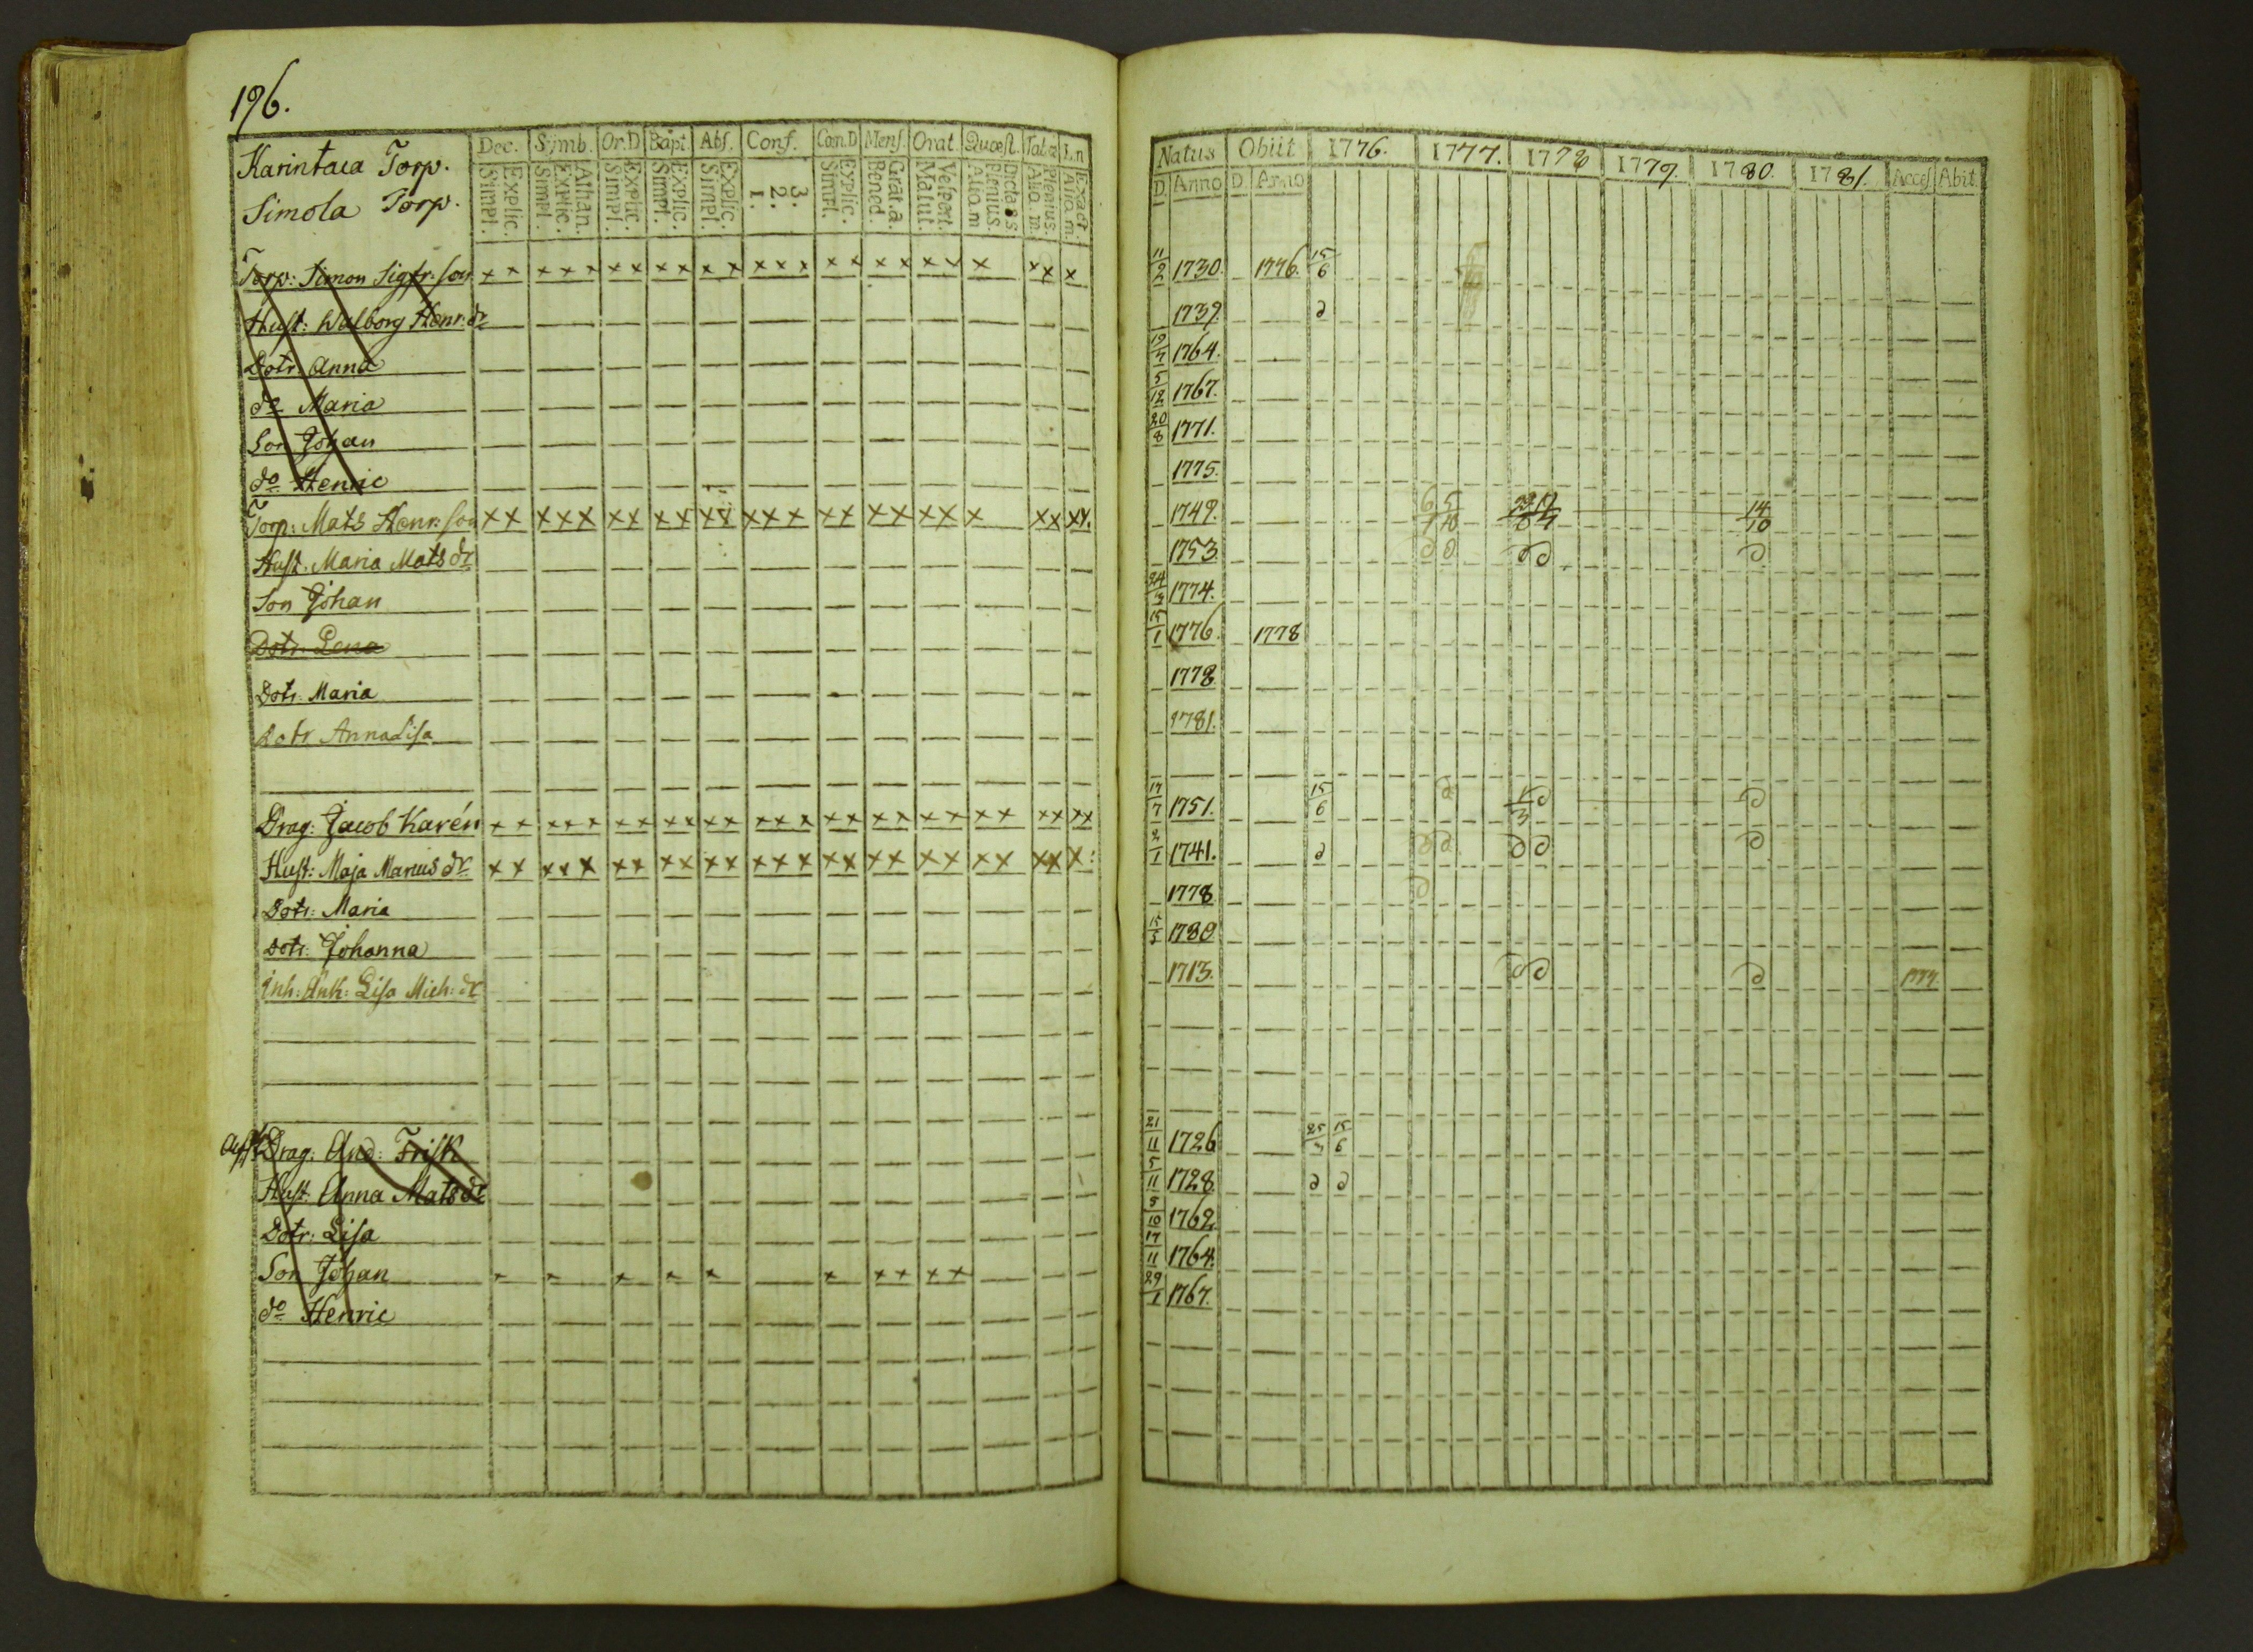 196.
Karintaca Torp.
Simola Torp.
Dec. Symb. Or.D Bapt. Abs. Conf. Cœn.D Mens. Orat. Quæst. Tab.æ
Explic. Simpl. Athan. Explic. Simpl. Explic. Simpl. Explic. Simpl. Explic. Simpl. 3. 2. 1. Explic. Simpl. Grat. a. Bened. Vespert. Matut. Dicta S S Plenius. Aliq. m Plenius. Aliq. m. Exact. Aliq. m.
Natus Obiit 1776. 1777. 1778 1779. 1780. 1781. Access Abit
D. Anno D. Anno
Torp: Simon Sigfr: son x x x x x x x x x x x x x x x x x x x x x x x 11/2 1730. 1776. 15/6
Hust: Walborg Henr: dr 1739. d
Dotr. Anna 1764.
do Maria 5/12 1767.
Son Johan 20/8 1771.
do Henric 1775.
Torp: Mats Henr: son x x x x x x x x x x x x x x x x x x x x x x x x x 1749. 14/10
Hust. Maria Mats dr 1753.
Son Johan 24/3 1774.
Dotr. Lena 15/1 1776. 1778
Dotr: Maria 1778
Dotr Anna Lisa 1781.
Drag: Jacob Karén x x x x x x x x x x x x x x x x x x x x x x x x x x 17/7 1751. 15/6
Hust: Maja Marcus dr x x x x x x x x x x x x x x x x x x x x x x x x x 2/1 1741. d
Dotr: Maria 1778
Dotr: Johanna 1780
Inh: Enk: Lisa Mich: dr 1713.
Drag: And: Frisk 21/11 1726 25/3 15/6
Hust. Anna Mats dr 5/11 1728. d d
Dotr: Lisa 1762
Son Johan x x x x x x x x x x 17/11 1764.
do Henric 29/1 1767.